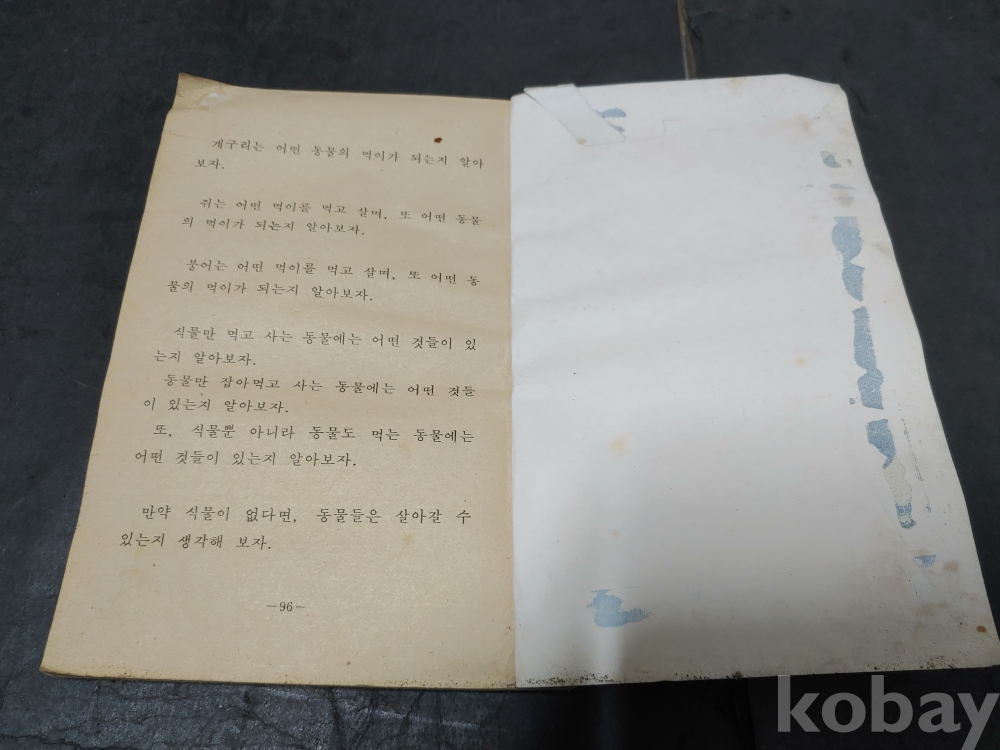 개구리는 어떤 동물의 먹이가 되는지 알아
보자.
쥐는 어떤 먹이를 먹고 살며, 또 어떤 동물
의 먹이가 되는지 알아보자.
붕어는 어떤 먹이를 먹고 살며, 또 어떤 동
물의 먹이가 되는지 알아보자.
식물만 먹고 사는 동물에는 어떤 것들이 있
는지 알아보자.
동물만 잡아먹고 사는 동물에는 어떤 것들
이 있는지 알아보자.
또, 식물뿐 아니라 동물도 먹는 동물에는
어떤 것들이 있는지 알아보자.
만약 식물이 없다면, 동물들은 살아갈 수
있는지 생각해 보자.
—96—
kobay